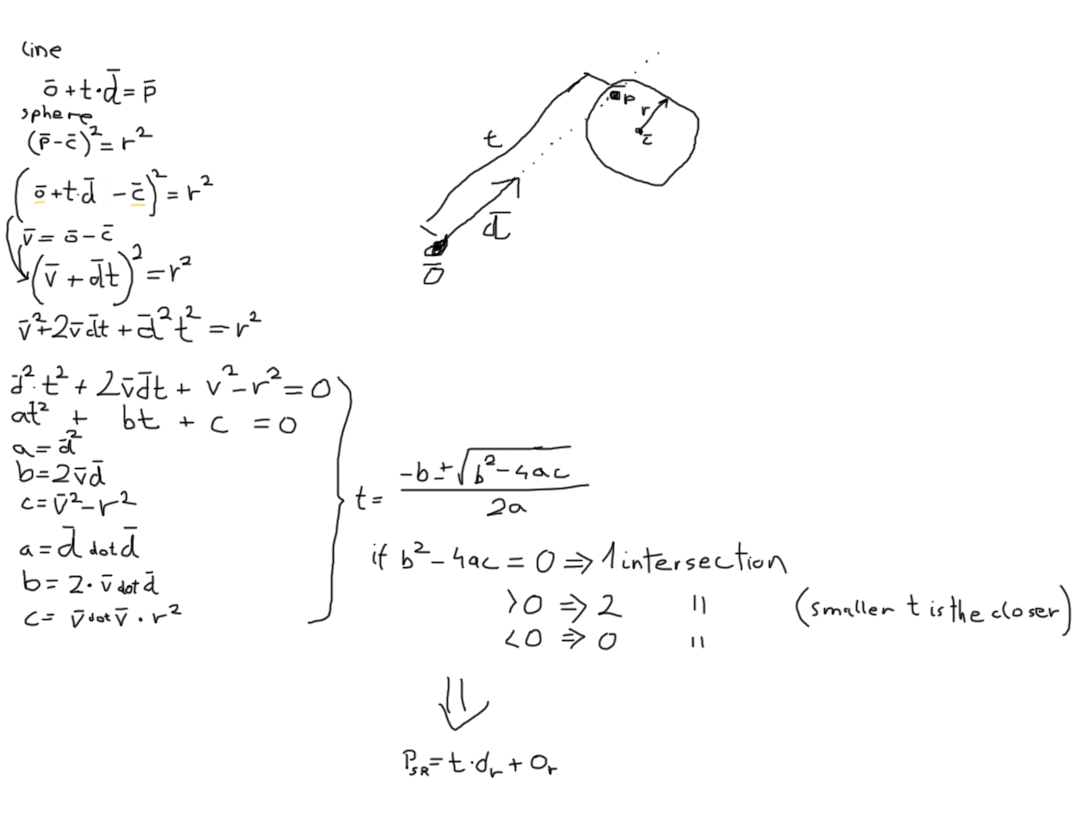 line
ō + t·d̄ = p̄
sphere
(p̄ - c̄)² = r²
(ō + t·d̄ - c̄)² = r²
v̄ = ō - c̄
(v̄ + d̄t)² = r²
v̄² + 2v̄d̄t + d̄²t² = r²
d̄²·t² + 2v̄d̄t + v² - r² = 0
at² + bt + c = 0
a = d̄²
b = 2v̄d̄
c = v̄² - r²
a = d̄ dot d̄
b = 2· v̄ dot d̄
c = v̄ dot v̄ · r²
t
d̄
ō
p
r
c̄
t = (-b ± √(b² - 4ac)) / 2a
if b² - 4ac = 0 ⇒ 1 intersection
>0 ⇒ 2 " (smaller t is the closer)
<0 ⇒ 0 "
⇓
P_SR = t·d_r + O_r